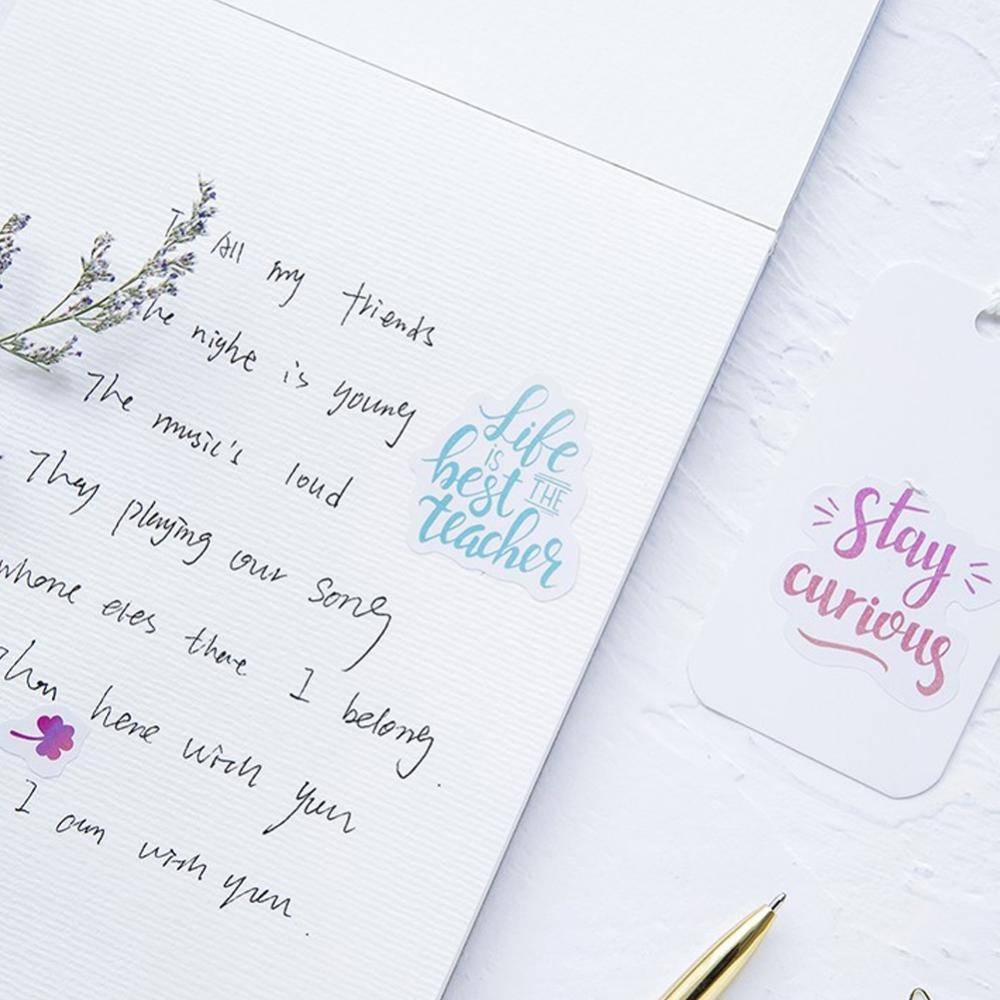 To All my friends
The night is young
The music's loud
They playing our song
whone eles there I belong.
When here with you
I am with you.
Life
is
best THE
teacher
stay
curious